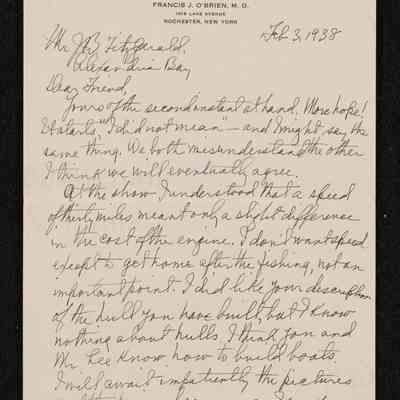 FRANCIS J. O'BRIEN, M. D.
1418 LAKE AVENUE
ROCHESTER, NEW YORK
Feb 3, 1938
Mr J.B. Fitzgerald,
Alexandria Bay
Dear Friend,
Yours of the second instant at hand. More hope!
It starts, "I did not mean" — and I might say the
same thing. We both misunderstand the other
I think we will eventually agree.
At the show I understood that a speed
of thirty miles meant only a slight difference
in the cost of the engine. I don't want speed
except to get home after the fishing, not an
important point. I did like your description
of the hull you have built, but I know
nothing about hulls. I think you and
Mr. Lee know how to build boats.
I will await impatiently the pictures